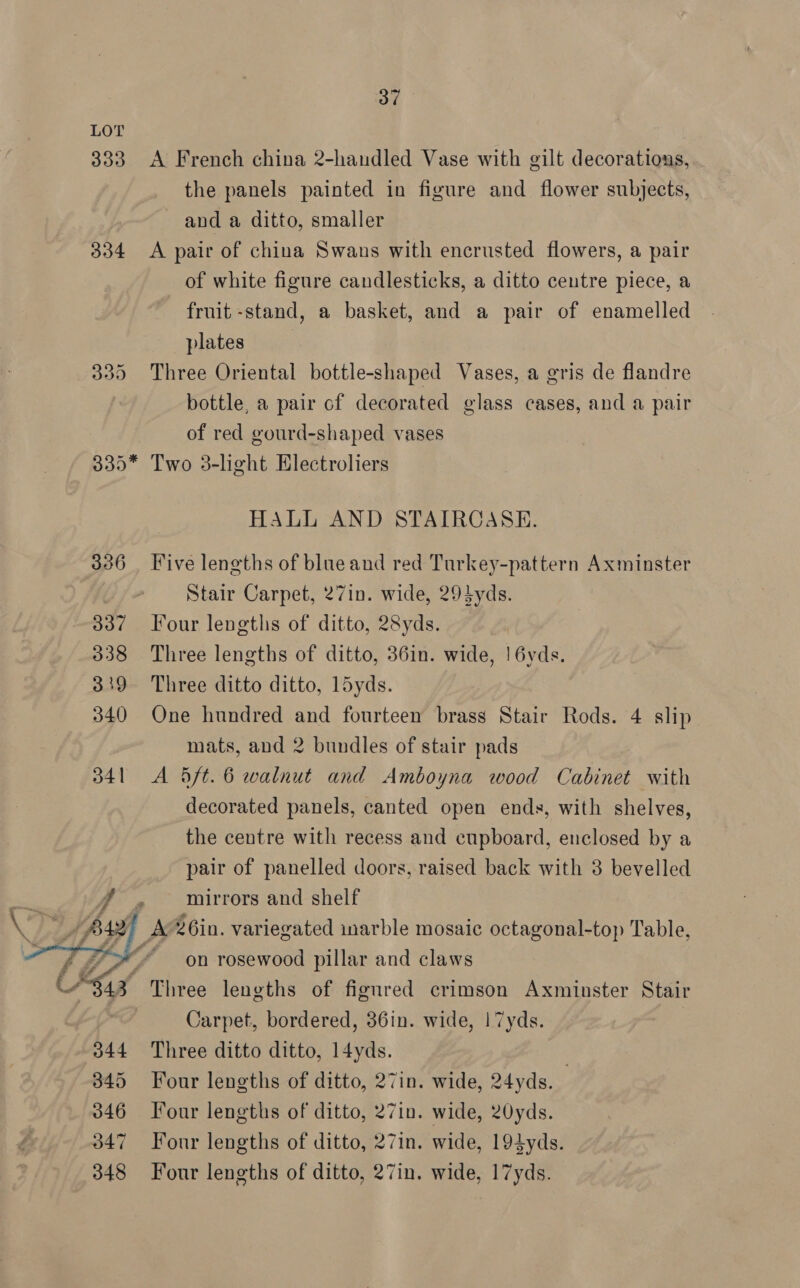 37
LOT
333 A French china 2-handled Vase with gilt decorations,
the panels painted in figure and flower subjects,
and a ditto, smaller
334 A pair of china Swans with encrusted flowers, a pair
of white figure candlesticks, a ditto centre piece, a
fruit-stand, a basket, and a pair of enamelled
plates
335 Three Oriental bottle-shaped Vases, a gris de flandre
bottle, a pair of decorated glass cases, and a pair
of red gourd-shaped vases
335* Two 3-light Electroliers
HALL AND STAIRCASE.
336 Five lengths of blue and red Turkey-pattern Axminster
Stair Carpet, 27in. wide, 29½yds.
337 Four lengths of ditto, 28yds.
338 Three lengths of ditto, 36in. wide, 16yds.
339 Three ditto ditto, 15yds.
340 One hundred and fourteen brass Stair Rods. 4 slip
mats, and 2 bundles of stair pads
341 A 5ft. 6 walnut and Amboyna wood Cabinet with
decorated panels, canted open ends, with shelves,
the centre with recess and cupboard, enclosed by a
pair of panelled doors, raised back with 3 bevelled
mirrors and shelf
342 A 26in. variegated marble mosaic octagonal-top Table,
on rosewood pillar and claws
343 Three lengths of figured crimson Axminster Stair
Carpet, bordered, 36in. wide, 17yds.
344 Three ditto ditto, 14yds.
345 Four lengths of ditto, 27in. wide, 24yds.
346 Four lengths of ditto, 27in. wide, 20yds.
347 Four lengths of ditto, 27in. wide, 19½yds.
348 Four lengths of ditto, 27in. wide, 17yds.